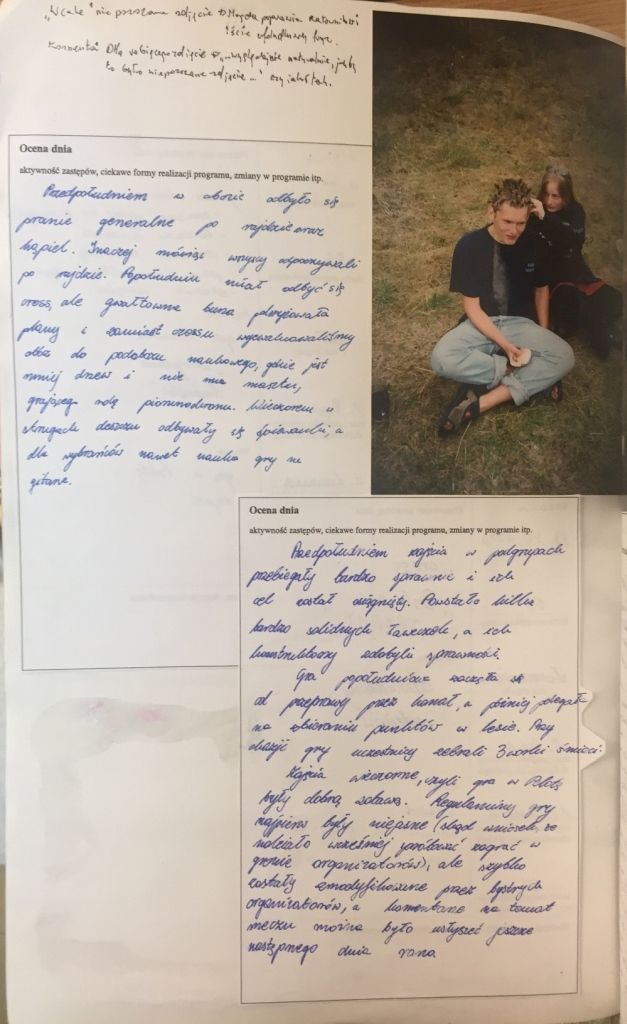 "Wcale" nie pozowane zdjęcie Magda poprawia Ratownikowi
iście fryz.
Komentarz zdjęcie "wyglądajcie naturalnie, jakby
to było niepozowane zdjęcie..." czy jakoś tak.
Ocena dnia
aktywność zastępów, ciekawe formy realizacji programu, zmiany w programie itp.
Przedpołudniem w obozie odbyło się
pranie generalne po rajdzie oraz
kąpiel. Inaczej mówiąc wszyscy odpoczywali
po rajdzie. Popołudniu miał odbyć się
cross, ale gwałtowna burza pokrzyżowała
plany i zamiast crossu wyewakuowaliśmy
obóz do podobozu naukowego, gdzie jest
mniej drzew i nie ma masztu,
grającego rolę piorunochronu. Wieczorem w
strugach deszczu odbywały się śpiewanki, a
dla wybrańców nawet nauka gry na
gitarze.
Ocena dnia
aktywność zastępów, ciekawe formy realizacji programu, zmiany w programie itp.
Przedpołudniem zajęcia w podgrupach
przebiegały bardzo sprawnie i ich
cel został osiągnięty. Powstało kilka
bardzo solidnych ławeczek, a ich
konstruktorzy zdobyli sprawności.
Gra popołudniowa zaczęła się
od przeprawy przez kanał, a później polegała
na zbieraniu punktów w lesie. Przy
okazji gry uczestnicy zebrali 3 worki śmieci.
Zajęcia wieczorne, czyli gra w
były dobrą zabawą. Regulaminy gry
najpierw były niejasne (stąd wniosek, że
należało wcześniej spróbować zagrać w
gronie organizatorów), ale szybko
zostały zmodyfikowane przez bystrych
organizatorów, a komentarze na temat
meczu można było usłyszeć jeszcze
następnego dnia rano.